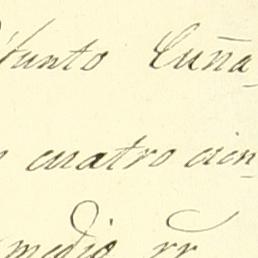 Cuña
cuatro cien
medio rr